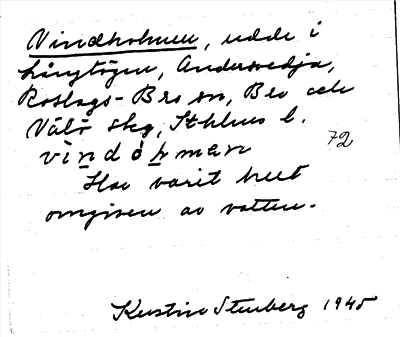 Vindholmen, udde i
Långtågen, Andersvedja,
Roslags-Bro sn, Bro och
Vätö skg, Sthlms l.
vindòhmen
72
Har varit helt
omgiven av vatten.
Kerstin Stenberg 1945